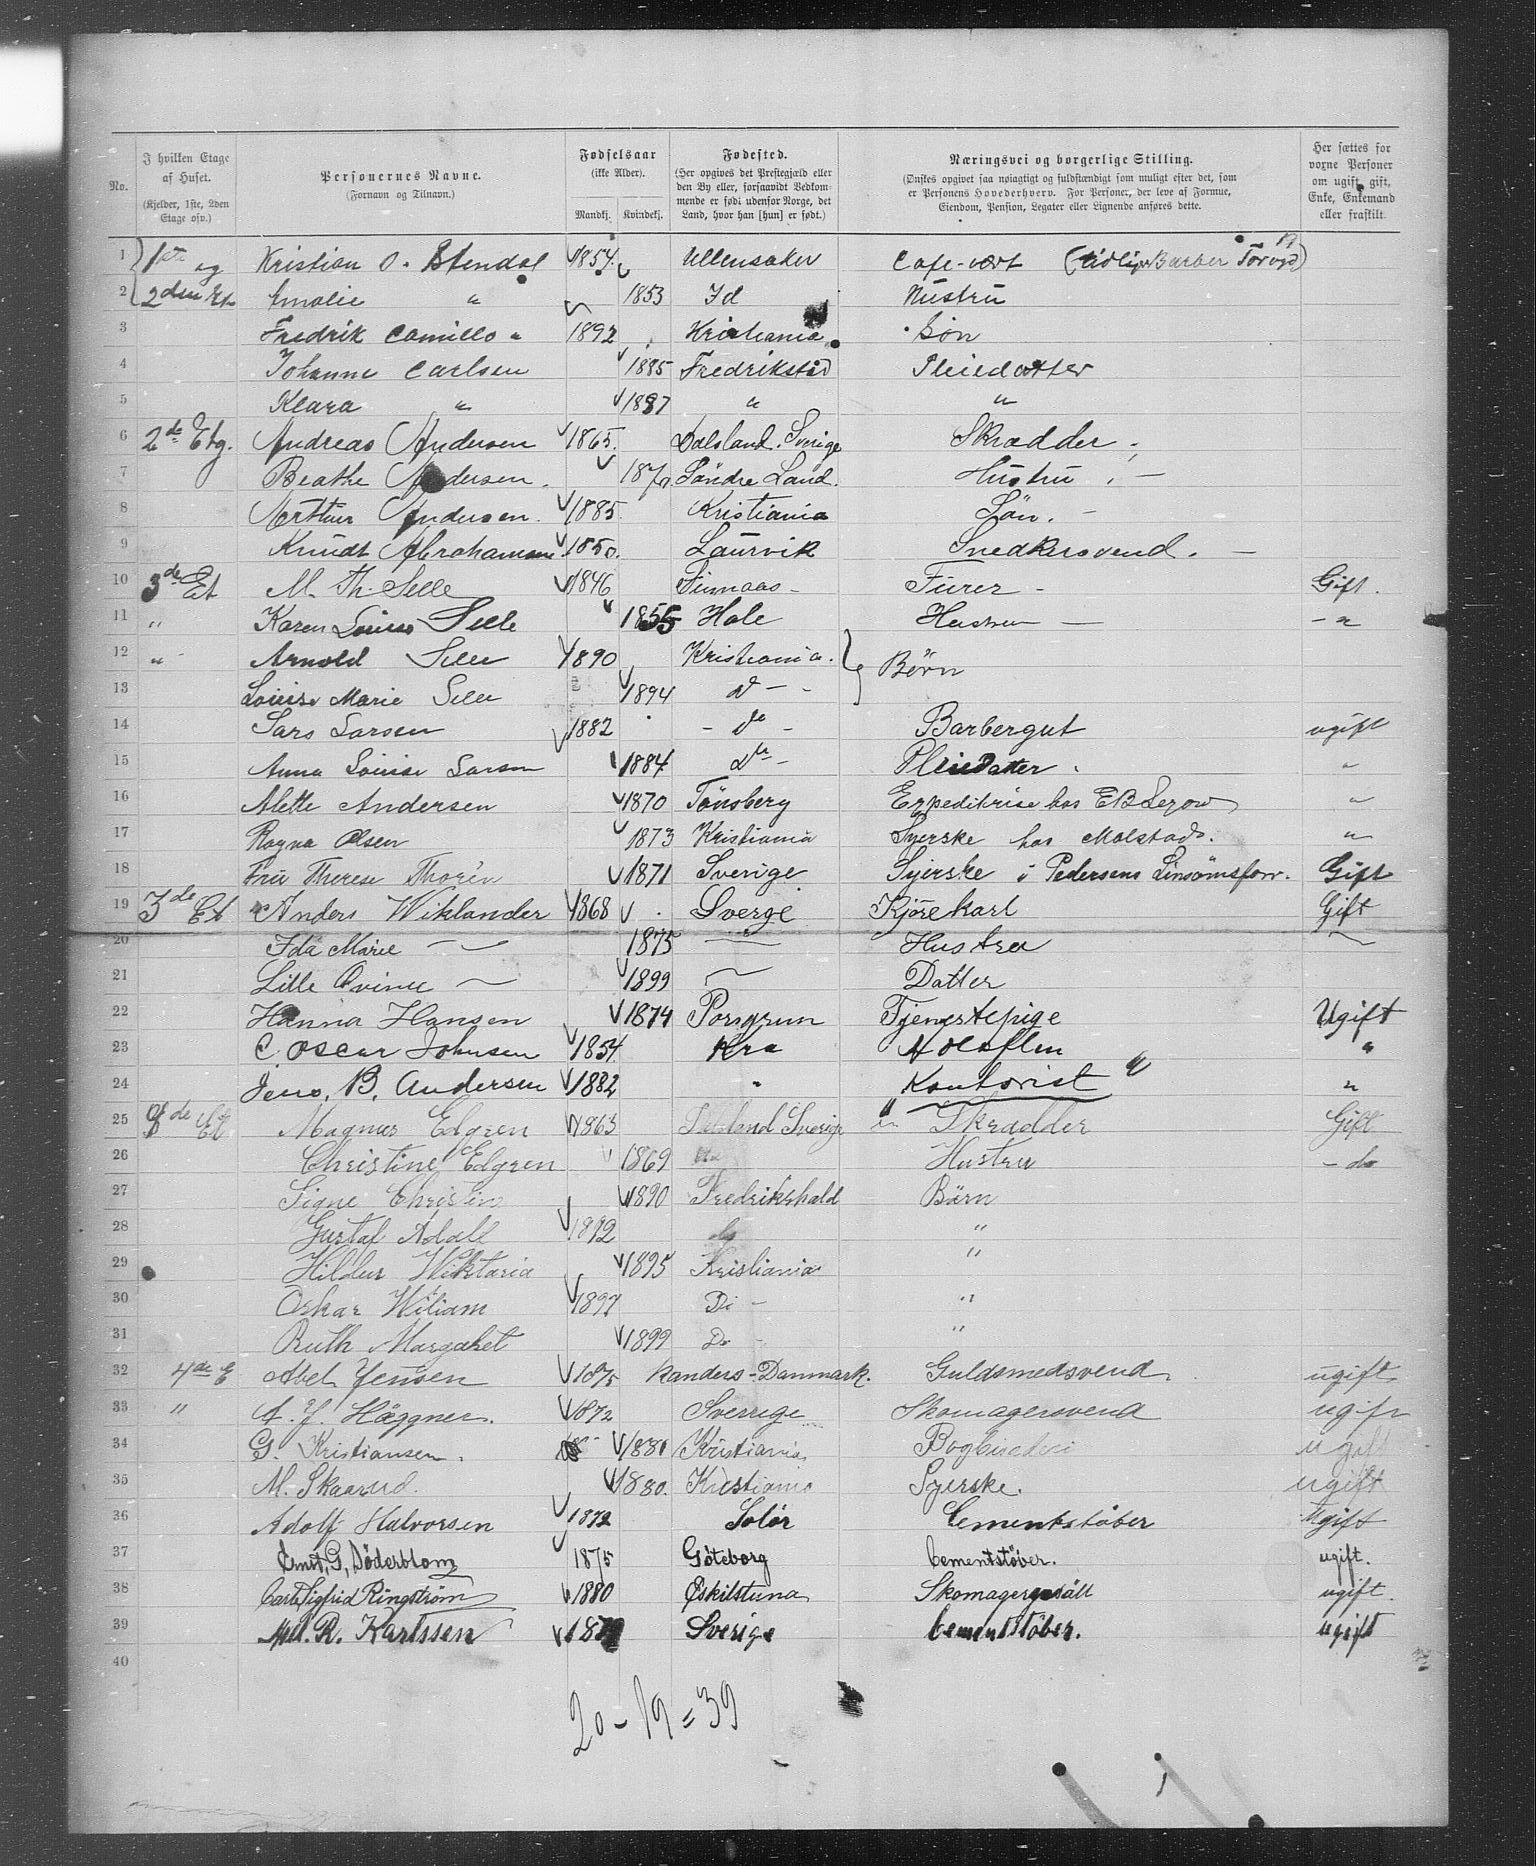 No. | I hvilken Etage af Huset. (Kjelder, 1ste, 2den Etage osv.) | Personernes Navne. (Fornavn og Tilnavn.) | Fødselsaar (ikke Alder). Mandkj. Kvindekj. | Fødested. (Her opgives det Prestegjæld eller den By eller, forsaavidt Vedkommende er født udenfor Norge, det Land, hvor han [hun] er født.) | Næringsvei og borgerlige Stilling. (Ønskes opgivet saa nøiagtigt og fuldstændigt som muligt efter det, som er Personens Hovederhverv. For Personer, der leve af Formue, Eiendom, Pension, Legater eller Lignende anføres dette. | Her sættes for voxne Personer om ugift, gift, Enke, Enkemand eller fraskilt.
1 1ste og Kristian O. Stendal 1854. Ullensaker Cafe-vært (tidlig Barber Torvgd)
2 2den Et. Amalie " 1853 Id Hustru
3 Fredrik Camillo " 1892 Kristiania Søn
4 Johanne Carlsen 1885 Fredrikstad Pleiedatter
5 Klara " 1887 " "
6 2de Etg. Andreas Andersen 1865. Dalsland. Sverige Skrædder
7 Beathe Andersen. 1870 Søndre Land. Hustru
8 Arthur Andersen. 1885. Kristiania Søn.
9 Knudt Abrahamsen 1850. Laurvik Snedkersvend.
10 3de Et M. Th. Selle 1846 Finnaas Furer Gift.
11 " Karen Louise Selle 1855 Hole Hustru "
12 " Arnold Selle 1890 Kristiania. } Børn
13 Louise Marie Selle 1894 d
14 Lars Larsen 1882 do Barbergut ugift
15 Anna Louise Larsen 1884 do Pleiedatter. "
16 Alette Andersen 1870 Tønsberg Expeditrise hos "
17 Ragna Olsen 1873 Kristiania Syerske hos Molstads. "
18 Fru Therese Thorén 1871 Sverige Syerske i Pedersens Linsømsforr. Gift
19 3de Et Anders Wiklander 1868 Sverge Kjørekarl Gift
20 Ida Marie — 1875 — Hustru —
21 Lille — 1899 — Datter
22 Hanna Hansen 1874 Porsgrun Tjenestepige Ugift
23 C. Oscar Johnsen 1854. Kra "
24 Jens. B. Andersen 1882 " Kontorist "
25 3de Et. Magnus Edgren 1863 Dalsland Sverige Skrædder Gift
26 Christine Edgren 1869 Hustru do
27 Signe Christin 1890 Fredrikshald Børn
28 Gustaf Adolf 1892 do "
29 Hildur Wiktoria 1895 Kristiania "
30 Oskar Wiliam 1897 Do "
31 Ruth Margaret 1899 Do "
32 4de E Abel Jensen 1875 Randers-Danmark. Guldsmedsvend ugift
33 " A. J. Häggner. 1872 Sverrige Skomagersvend ugift
34 G. Kristiansen. 1881 Kristiania ugift
35 M. Skaarud. 1880. Kristiania Syerske. ugift
36 Adolf Halvorsen 1872 Solør Cementstøber Ugift
37 Ernst, G, Söderblom 1875 Göteborg Cementstøber. ugift.
38 Carl Sigfrid Ringström 1880 Eskilstuna Skomagergesäll ugift.
39 R. Karlssen 187 Sverige Cementstöber. ugift
40
20 - 19 = 39